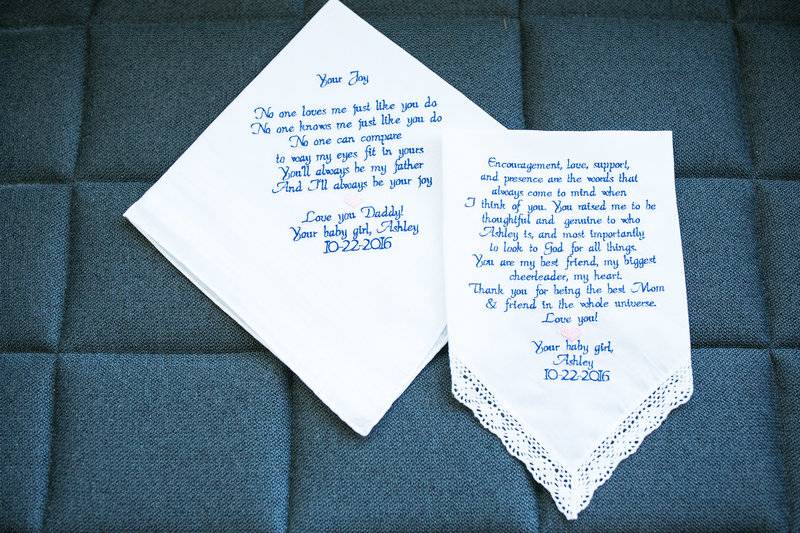 Your Joy
No one loves me just like you do
No one knows me just like you do
No one can compare
to way my eyes fit in yours
You'll always be my father
And I'll always be your joy
Love you Daddy!
Your baby girl, Ashley
10-22-2016
Encouragement, love, support,
and presence are the words that
always come to mind when
I think of you. You raised me to be
thoughtful and genuine to who
Ashley is, and most importantly
to look to God for all things.
You are my best friend, my biggest
cheerleader, my heart.
Thank you for being the best Mom
& friend in the whole universe.
Love you!
Your baby girl,
Ashley
10-22-2016